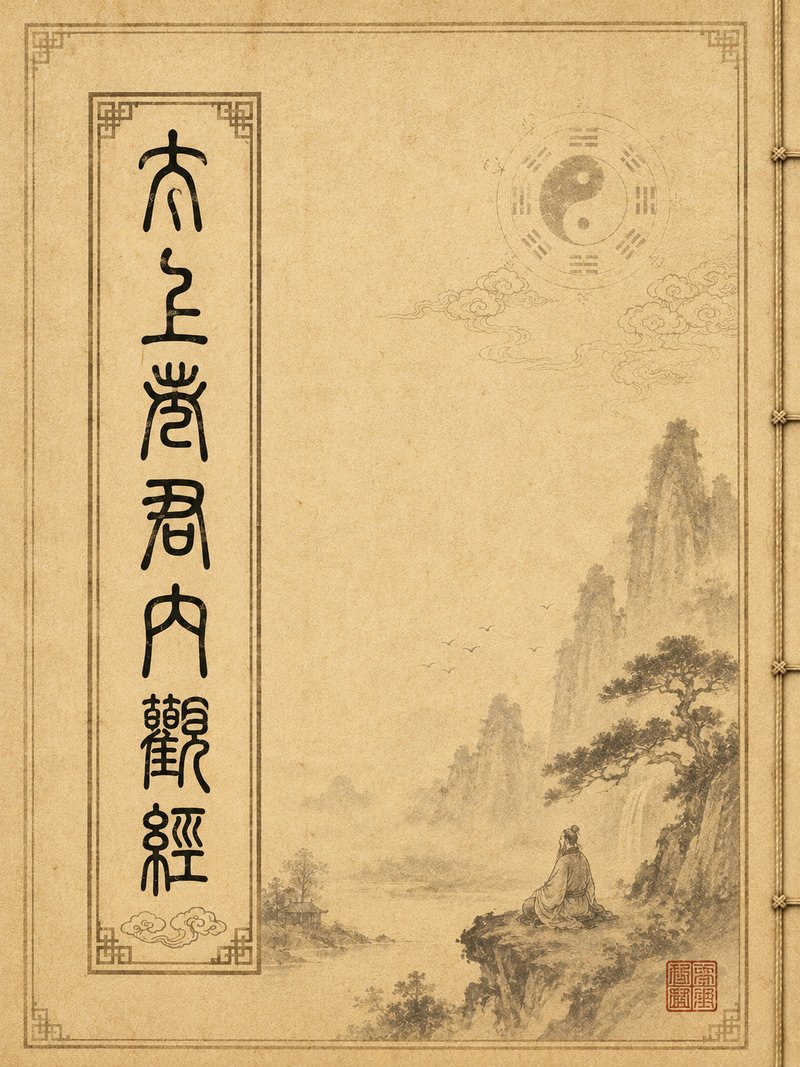 太上老君內觀經